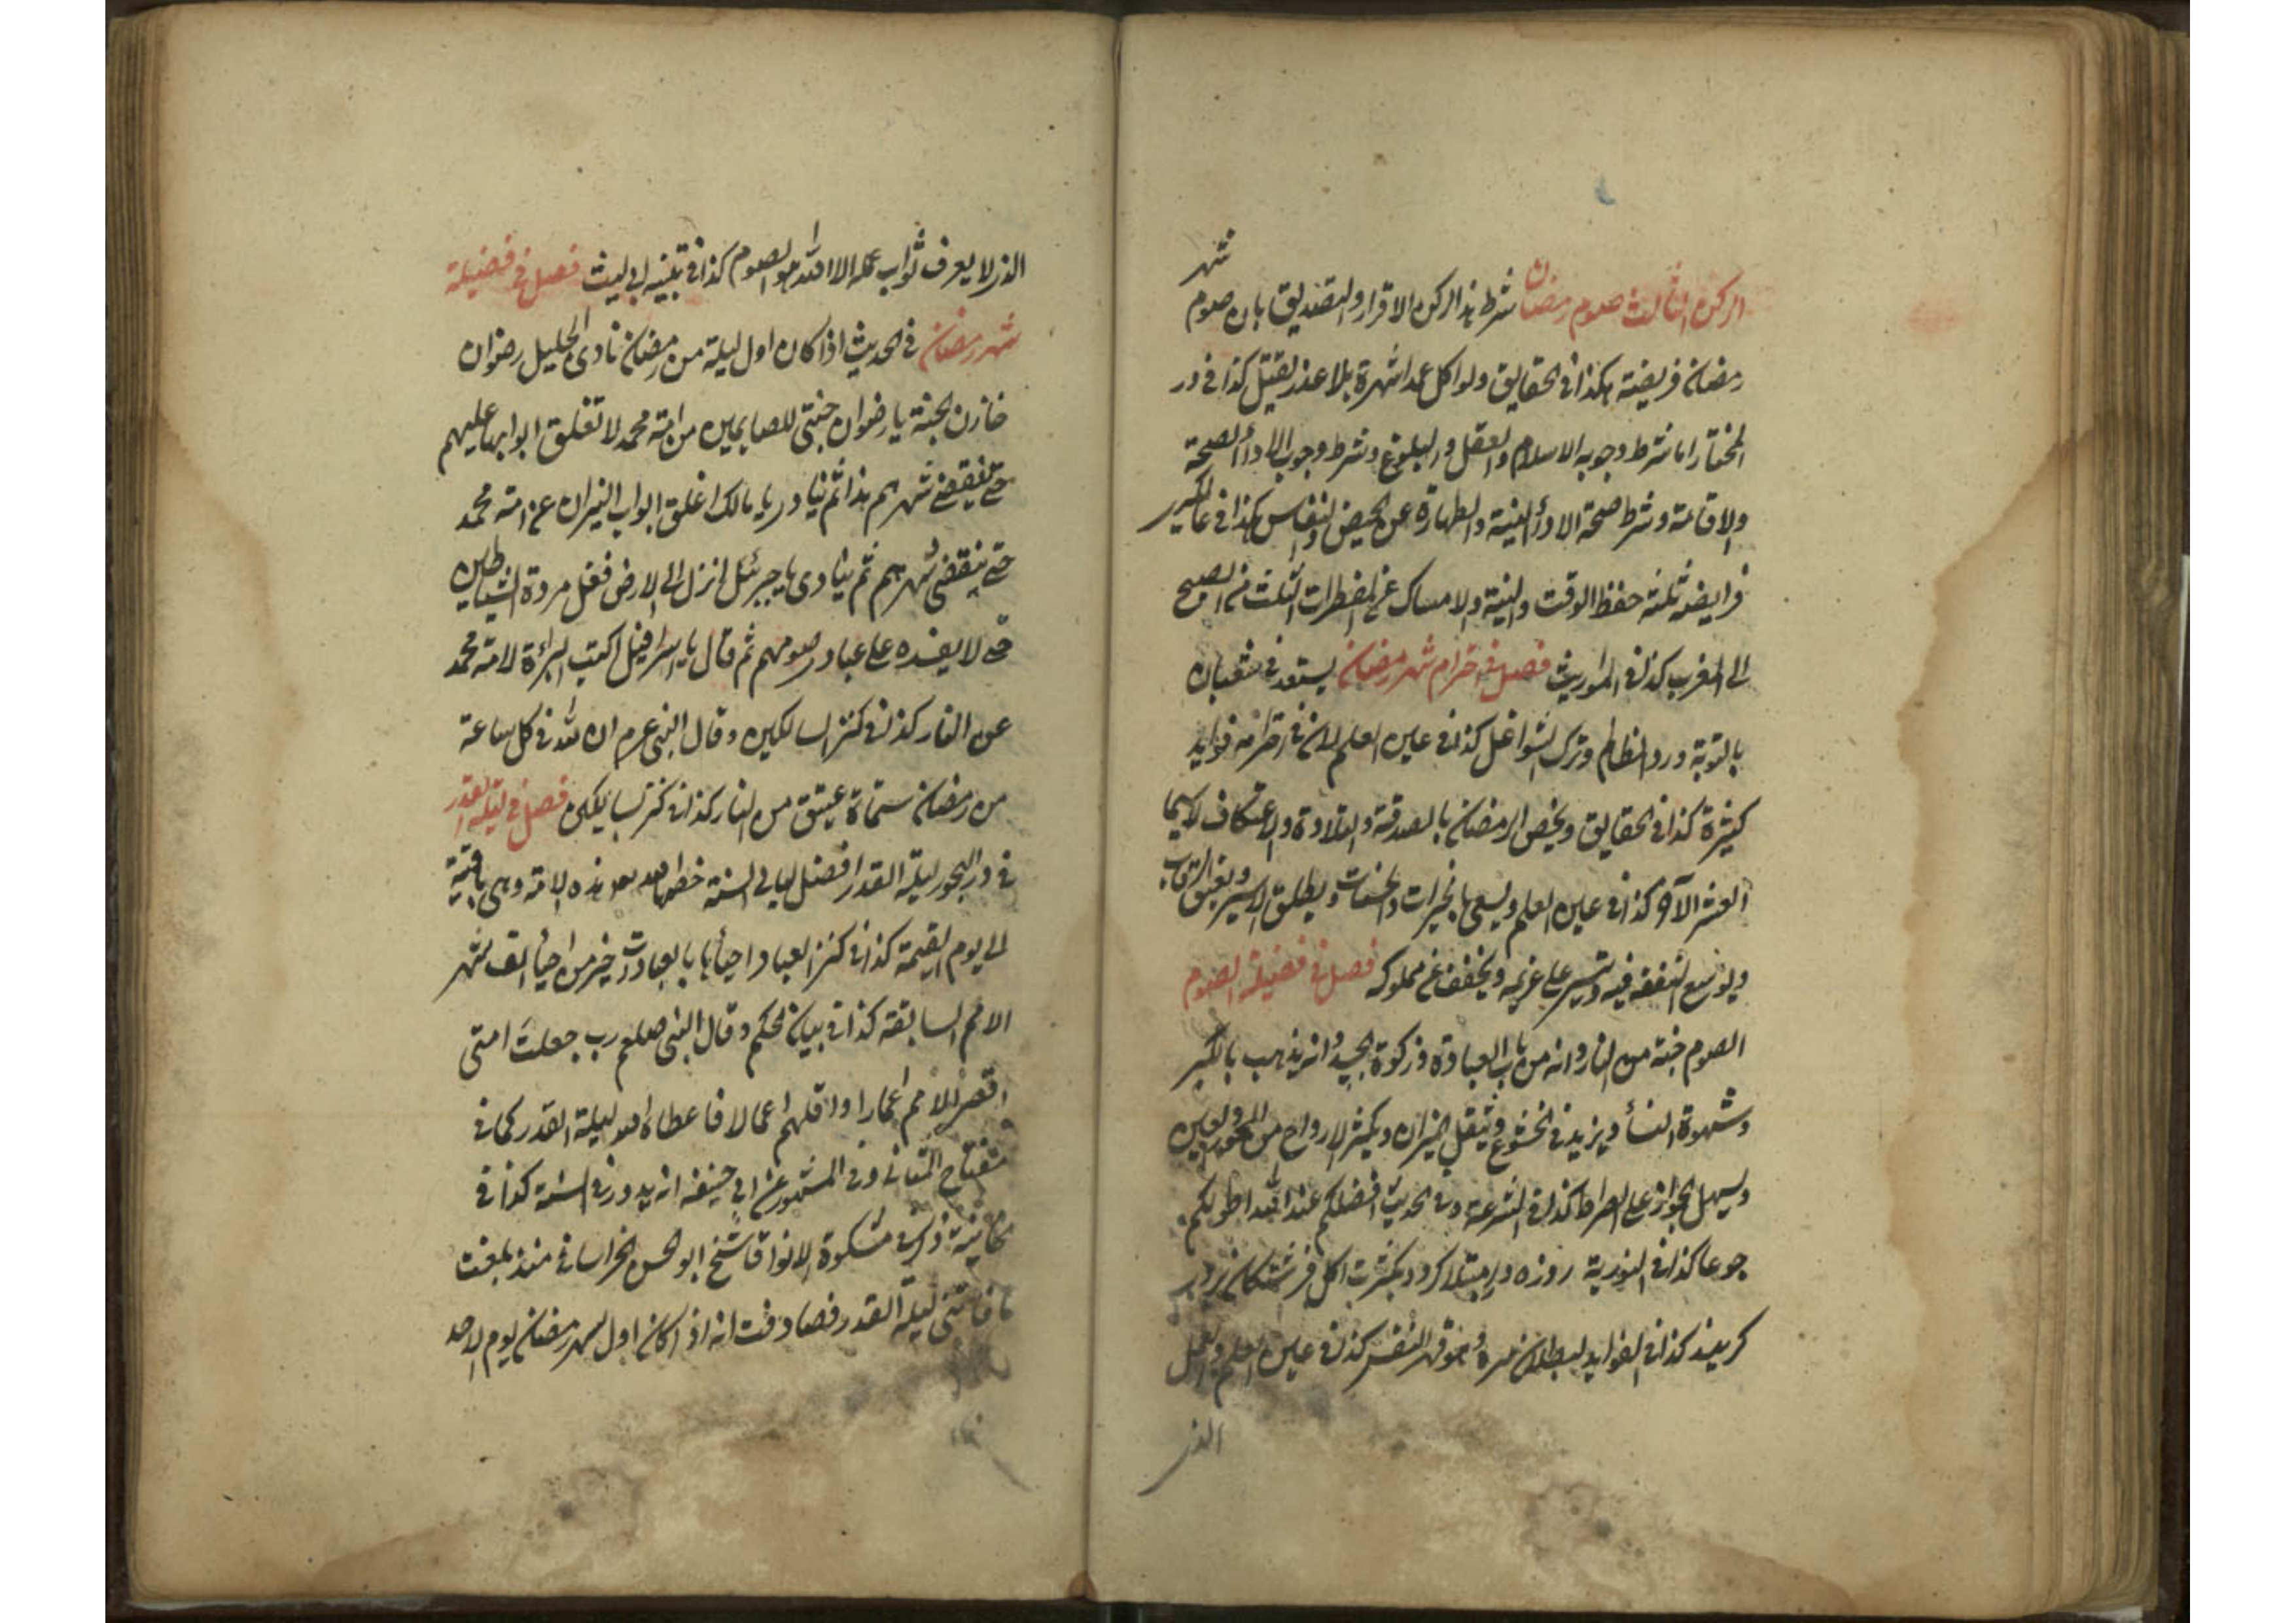 شهر
الركن الثالث صوم رمضان شرط هذا الركن الاقرار والتصديق بان صوم
رمضان فريضة هكذا فى الحقايق ولو اكل عمدا شهرة بلا عذر يقتل كذا فى در
المختار اما شرط وجوبه الاسلام والعقل والبلوغ وشرط وجوب الاداأ الصحة
والاقامة وشرط صحة الاداأ النية والطهارة عن الحيض والنفاس كذا فى عالمكير
فرايضه ثلثة حفظ الوقت والنية والامساك عن المفطرات الثلث من الصبح
الى المغرب كذا فى فصل فى احترام شهر رمضان يستعد فى شعبان
بالتوبة ورد المظالم وترك الشواغل كذا فى عين العلم لان فى احترامه فوايد
كثيرة كذا فى الحقايق ويخص الرمضان بالصدقة والتلاوة والاعتكاف لاسيما
العشر الآخر كذا فى عين العلم ويسعى بالخيرات والحسنات ويطلق الاسير ويعتق الرقاب
ويوسع النفقة فيه ويتيسر على غريمه ويخفف عن مملوكه فصل فى فضيلة الصوم
الصوم جنة من النار وانه من باب العبادة وزكوة الجسد وانه يذهب بالكبر
وشهوة النساأ ويزيد فى الخشوع ويثقل الميزان ويكثر الازواج من الحور العين
ويسهل الجواز على الصراط كذا فى الشرعة وفى الحديث افضلكم عند الله اطولكم
جوعا كذا فى النورية روزه
كذا فى الفوايد وهو قهر النفس كذا فى عين العلم والعمل
الذى
الذى لا يعرف ثواب عمله الا الله هو الصوم كذا فى تنبيه ابى ليث فصل فى فضيلة
شهر رمضان فى الحديث اذا كان اول ليلة من رمضان نادى الجليل رضوان
خازن الجنة يا رضوان جنتى للصايمين من امة محمد لا تغلق ابوابها عليهم
حتى ينقضى شهرهم هذا ثم ينادى يا مالك اغلق ابواب النيران عن امة محمد
حتى ينقضى شهرهم ثم ينادى يا جبرئل انزل الى الارض فغل مردة الشياطين
حتى لا يفسده على عبادى صومهم ثم قال يا اسرافيل اكتب البراأة لامة محمد
عن النار كذا فى كنز السالكين وقال النبى عم ان لله فى كل ساعة
من رمضان ستماة عتيق من النار كذا فى كنز السالكين فصل فى ليلة القدر
فى در البحور ليلة القدر افضل ليالى السنة خص الله هذه الامة وهى باقية
الى يوم القيمة كذا فى كنز العباد احياأها بالعبادت خير من احياأ الف شهر
الامم السابقة كذا فى بيان الحكم وقال النبى صلعم رب جعلت امتى
اقصر الامم اعمارا واقلهم اعمالا فاعطاه الله ليلة القدر كما فى
مفتاح المعانى وفى المشهور عن ابى حنيفة انه يدور فى السنة كذا فى
خانية مشكوة الانوار قال شيخ ابو الحسن الخراسانى منذ بلغت
ما فاتتنى ليلة القدر فصادفت انه اذا كان اول شهر رمضان يوم الاحد